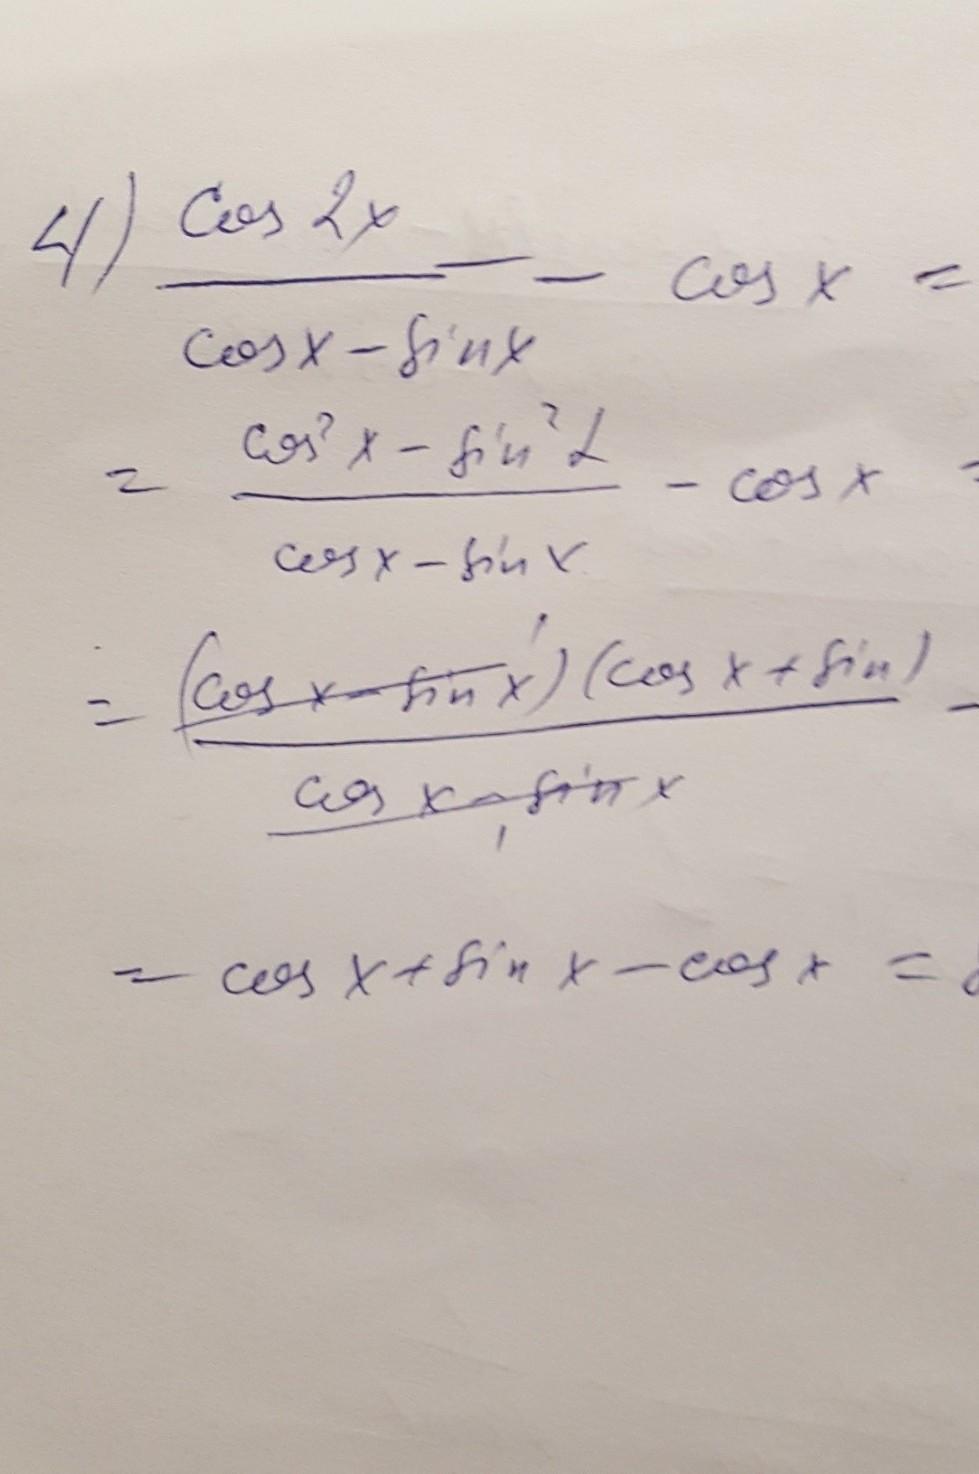 4) cos 2x / cos x - sin x - cos x =
= cos² x - sin² α / cos x - sin x - cos x =
= (cos x - sin x)¹ (cos x + sin) / cos x - sin x ₁ -
= cos x + sin x - cos x =